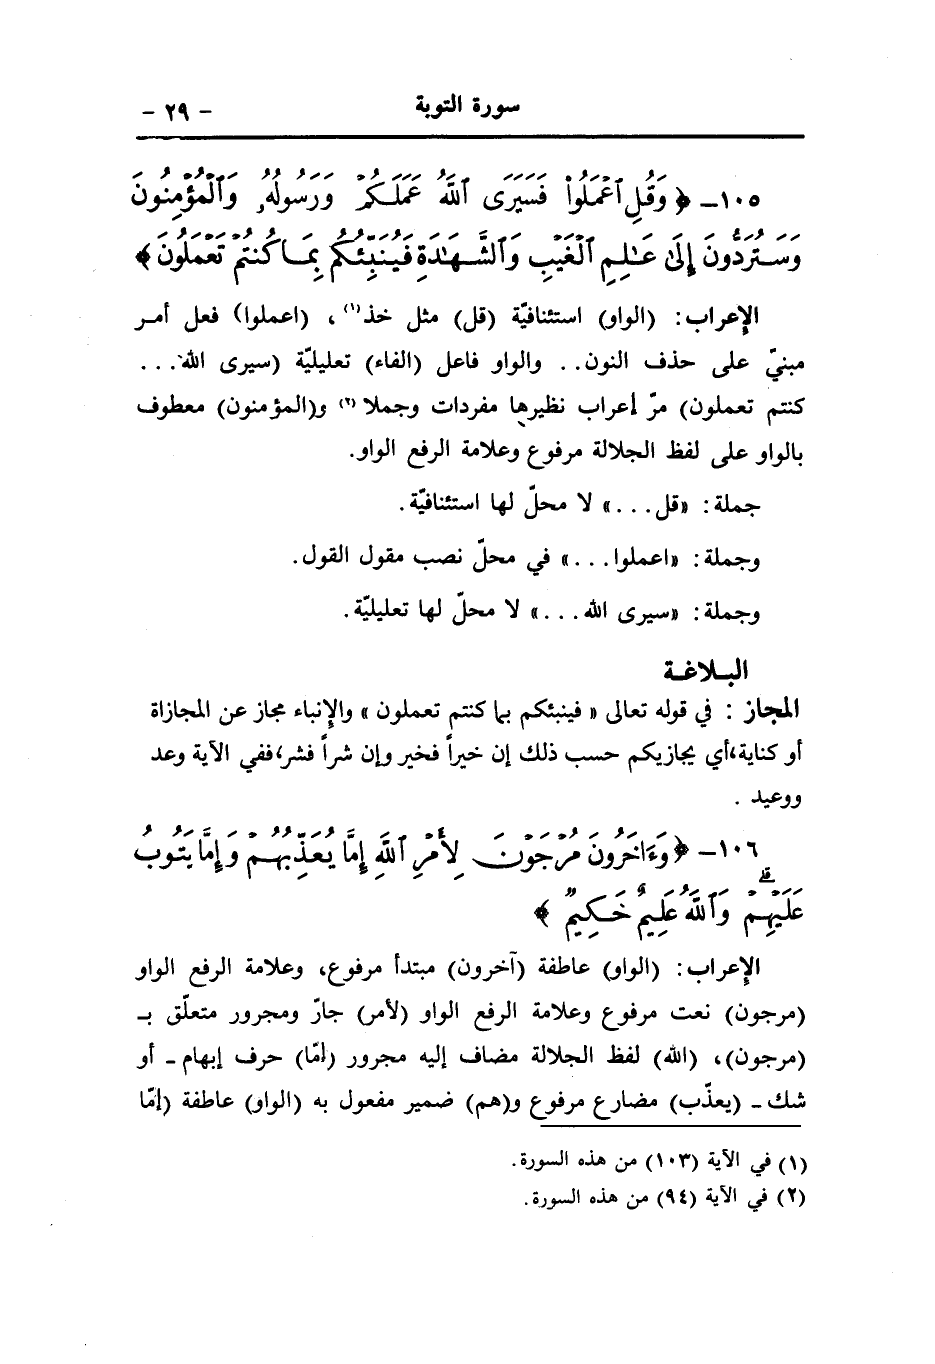 سورة التوبة
- ٢٩ -
١٠٥- ﴿ وَقُلِ ٱعْمَلُوا۟ فَسَيَرَى ٱللَّهُ عَمَلَكُمْ وَرَسُولُهُۥ وَٱلْمُؤْمِنُونَ
وَسَتُرَدُّونَ إِلَىٰ عَـٰلِمِ ٱلْغَيْبِ وَٱلشَّهَـٰدَةِ فَيُنَبِّئُكُم بِمَا كُنتُمْ تَعْمَلُونَ ﴾
الإعراب: (الواو) استئنافيّة (قل) مثل خذ(١)، (اعملوا) فعل أمر
مبنيّ على حذف النون.. والواو فاعل (الفاء) تعليليّة (سيرى الله...
كنتم تعملون) مرّ إعراب نظيرها مفردات وجملا(٢) و(المؤمنون) معطوف
بالواو على لفظ الجلالة مرفوع وعلامة الرفع الواو.
جملة: «قل...» لا محلّ لها استئنافيّة.
وجملة: «اعملوا...» في محلّ نصب مقول القول.
وجملة: «سيرى الله...» لا محلّ لها تعليليّة.
البلاغة
المجاز : في قوله تعالى « فينبئكم بما كنتم تعملون » والإنباء مجاز عن المجازاة
أو كناية،أي يجازيكم حسب ذلك إن خيراً فخير وإن شراً فشر،ففي الآية وعد
ووعيد .
١٠٦- ﴿ وَءَاخَرُونَ مُرْجَوْنَ لِأَمْرِ ٱللَّهِ إِمَّا يُعَذِّبُهُمْ وَإِمَّا يَتُوبُ
عَلَيْهِمْ ۗ وَٱللَّهُ عَلِيمٌ حَكِيمٌ ﴾
الإعراب: (الواو) عاطفة (آخرون) مبتدأ مرفوع، وعلامة الرفع الواو
(مرجون) نعت مرفوع وعلامة الرفع الواو (لأمر) جارّ ومجرور متعلّق بـ
(مرجون)، (الله) لفظ الجلالة مضاف إليه مجرور (إمّا) حرف إبهام - أو
شك - (يعذّب) مضارع مرفوع و(هم) ضمير مفعول به (الواو) عاطفة (إمّا
(١) في الآية (١٠٣) من هذه السورة.
(٢) في الآية (٩٤) من هذه السورة.